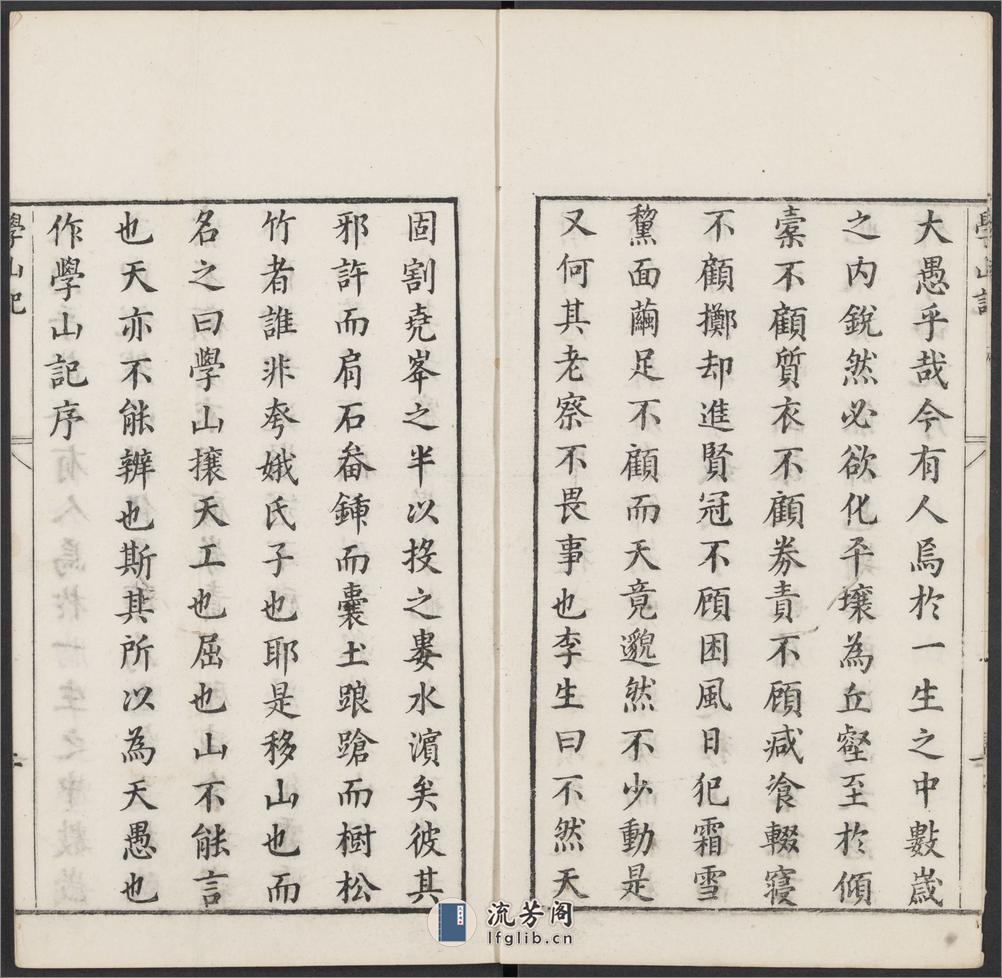 大愚乎哉今有人焉於一生之中數歲
之內銳然必欲化平壤為丘壑至於傾
橐不顧質衣不顧券責不顧减飡輟寢
不顧擲却進賢冠不顧困風日犯霜雪
黧面繭足不顧而天竟邈然不少動是
又何其老察不畏事也李生曰不然天
固割堯峯之半以投之婁水濵矣彼其
邪許而肩石畚鍤而囊土踉蹌而樹松
竹者誰非夸娥氏子也耶是移山也而
名之曰學山攘天工也屈也山不能言
也天亦不能辨也斯其所以為天愚也
作學山記序
學山記
學山記
流芳阁
lfglib.cn